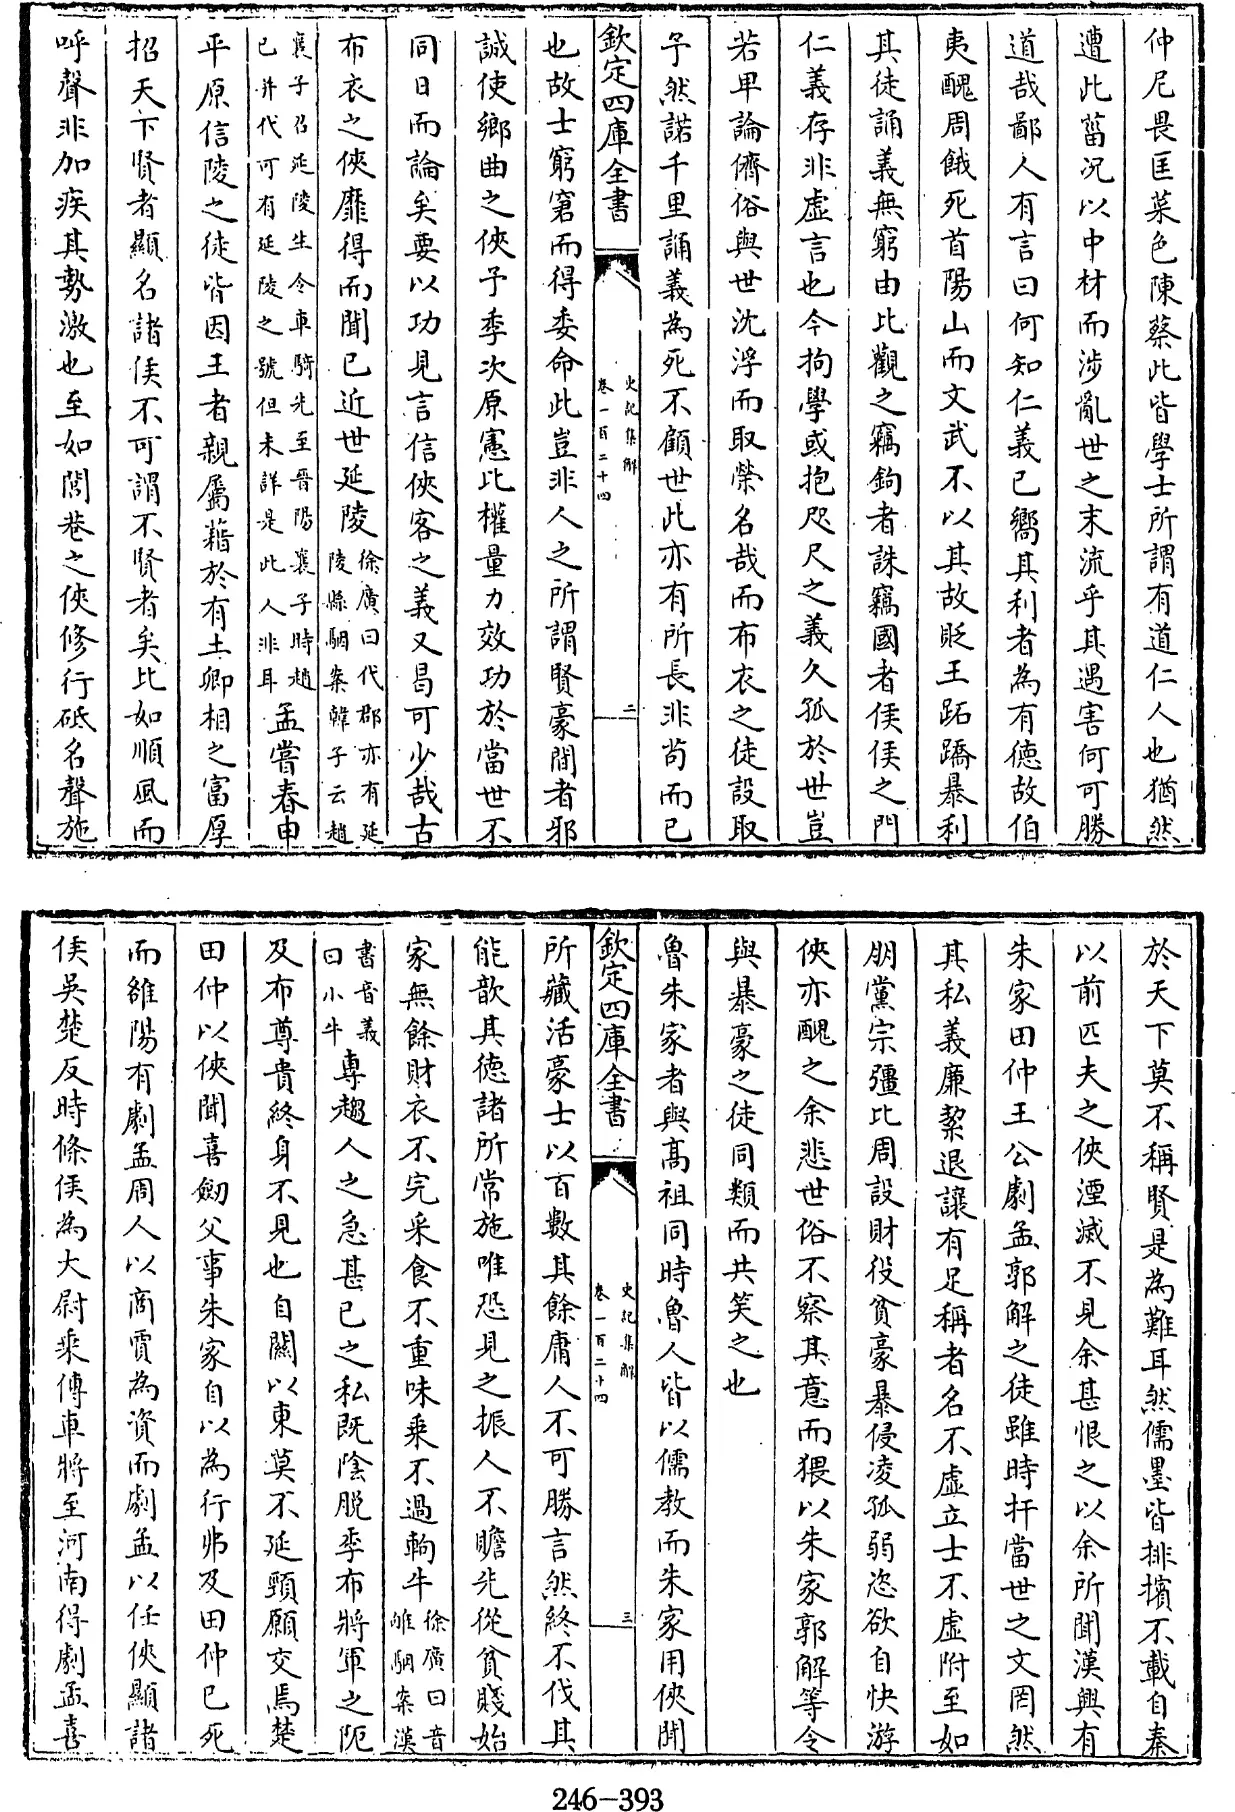 仲尼畏匡菜色陳蔡此皆學士所謂有道仁人也猶然
遭此菑况以中材而涉亂世之末流乎其遇害何可勝
道哉鄙人有言曰何知仁義已嚮其利者為有德故伯
夷醜周餓死首陽山而文武不以其故貶王跖蹻暴利
其徒誦義無窮由此觀之竊鉤者誅竊國者侯侯之門
仁義存非虛言也今拘學或抱咫尺之義久孤於世豈
若卑論儕俗與世沈浮而取榮名哉而布衣之徒設取
予然諾千里誦義為死不顧世此亦有所長非苟而已
欽定四庫全書
史記集解
卷一百二十四
二
也故士窮窘而得委命此豈非人之所謂賢豪間者邪
誠使鄉曲之俠予季次原憲比權量力效功於當世不
同日而論矣要以功見言信俠客之義又曷可少哉古
布衣之俠靡得而聞已近世延陵徐廣曰代郡亦有延陵縣駰案韓子云趙
襄子召延陵生令車騎先至晉陽襄子時趙已并代可有延陵之號但未詳是此人非耳孟嘗春申
平原信陵之徒皆因王者親屬藉於有土卿相之富厚
招天下賢者顯名諸侯不可謂不賢者矣比如順風而
呼聲非加疾其勢激也至如閭巷之俠修行砥名聲施
於天下莫不稱賢是為難耳然儒墨皆排擯不載自秦
以前匹夫之俠湮滅不見余甚恨之以余所聞漢興有
朱家田仲王公劇孟郭解之徒雖時扞當世之文罔然
其私義廉絜退讓有足稱者名不虛立士不虛附至如
朋黨宗彊比周設財役貧豪暴侵凌孤弱恣欲自快游
俠亦醜之余悲世俗不察其意而猥以朱家郭解等令
與暴豪之徒同類而共笑之也
魯朱家者與高祖同時魯人皆以儒教而朱家用俠聞
欽定四庫全書
史記集解
卷一百二十四
三
所藏活豪士以百數其餘庸人不可勝言然終不伐其
能歆其德諸所常施唯恐見之振人不贍先從貧賤始
家無餘財衣不完采食不重味乘不過軥牛徐廣曰音雊駰案漢
書音義曰小牛專趨人之急甚已之私既陰脫季布將軍之阨
及布尊貴終身不見也自關以東莫不延頸願交焉楚
田仲以俠聞喜劒父事朱家自以為行弗及田仲已死
而雒陽有劇孟周人以商賈為資而劇孟以任俠顯諸
侯吳楚反時條侯為大尉乘傳車將至河南得劇孟喜
246-393